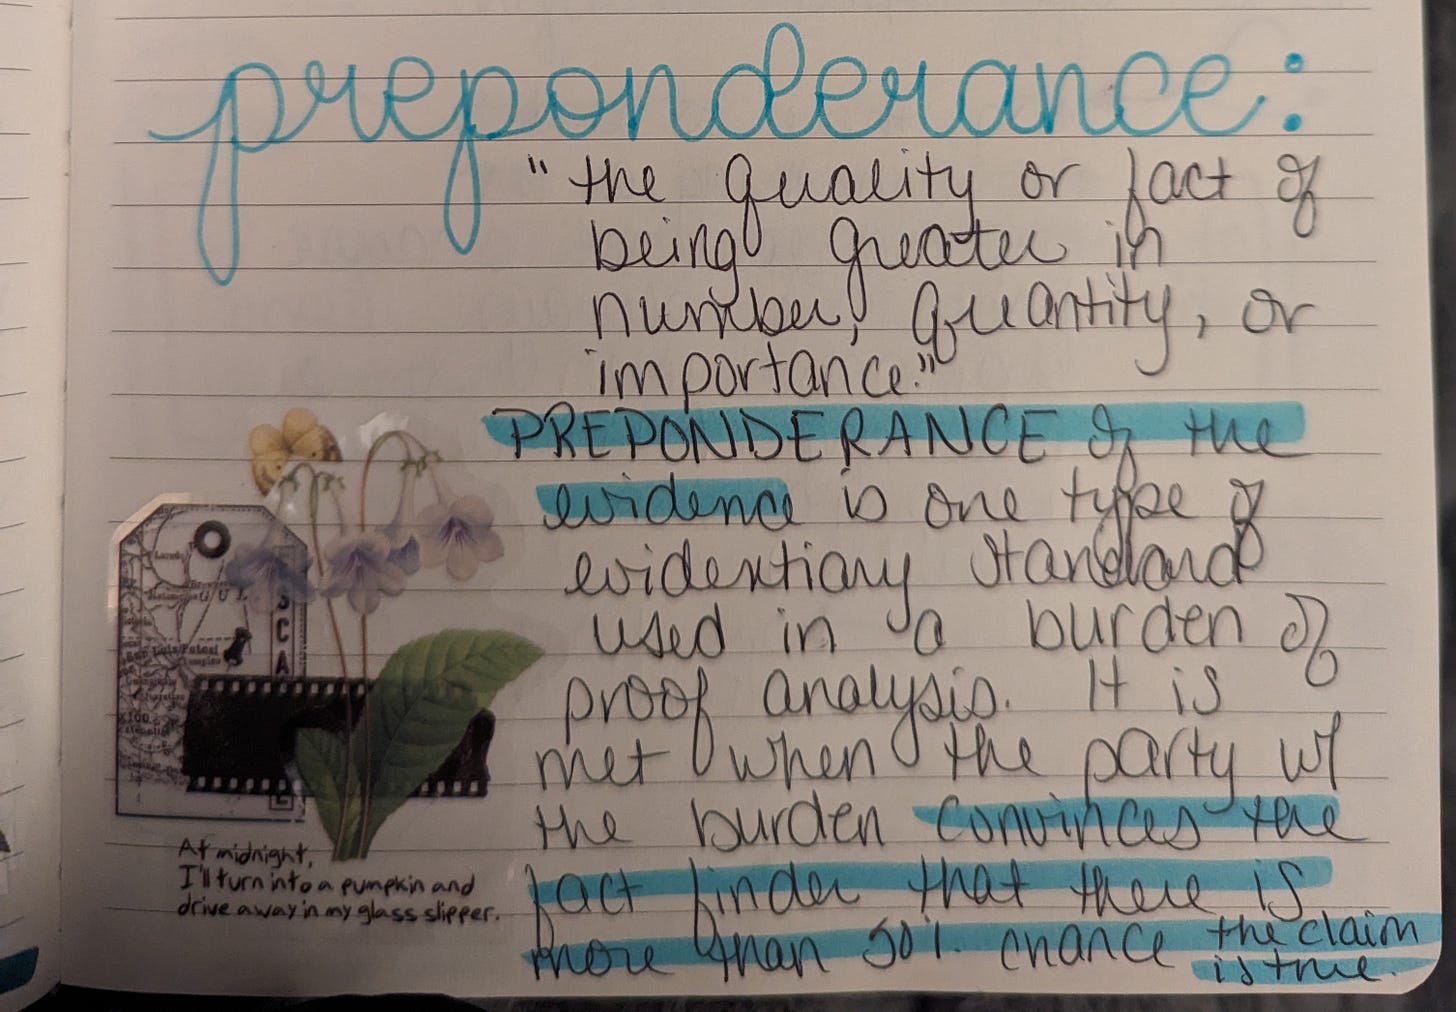 preponderance:
"the quality or fact of
being greater in
number, quantity, or
importance."
PREPONDERANCE of the
evidence is one type of
evidentiary standard
used in a burden of
proof analysis. It is
met when the party w/
the burden convinces the
fact finder that there is
more than 50% chance the claim
is true.
At midnight,
I'll turn into a pumpkin and
drive away in my glass slipper.
Laredo
Luis Potosi
SCA